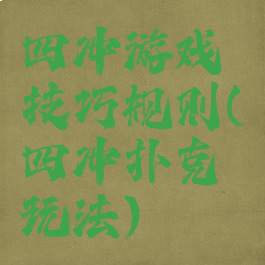 四冲游戏
技巧规则(
四冲扑克
玩法)